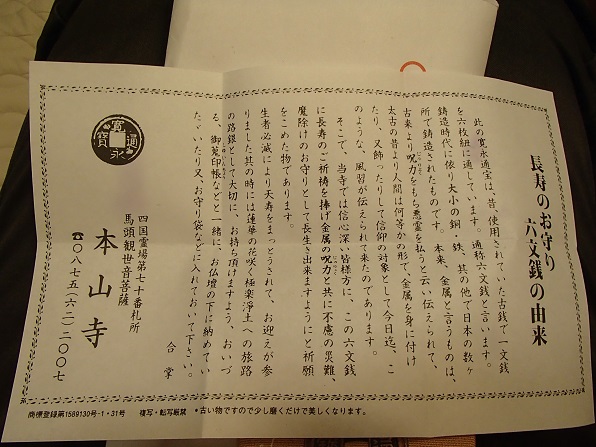 長寿のお守り
六文銭の由来
此の寛永通宝は、昔使用されていた古銭で一文銭
を六枚紐に通しています。通称六文銭と言います。
鋳造時代に依り大小の銅・鉄、其の他で日本の数ヶ
所で鋳造されたものです。本来、金属と言うものは、
古来より呪力をもち悪霊を払うと云い伝えられて、
太古の昔より人間は何等かの形で、金属を身に付け
たり、又飾ったりして信仰の対象として今日迄、こ
のような、風習が伝えられて来たのであります。
そこで、当寺では信心深い皆様方に、この六文銭
に長寿のご祈祷を捧げ金属の呪力と共に不慮の災難、
魔除けのお守りとして長生き出来ますようにと祈願
をこめた物であります。
生者必滅により天寿をまっとうされて、お迎えが参
りました其の時には蓮華の花咲く極楽浄土への旅路
の路銀として大切に、お持ち頂けますよう、おいづ
る、御菟印帳などと一緒に、お仏壇の下に納めてい
たゞいたり又、お守り袋などに入れておいて下さい。
合掌
四国霊場第七十番札所
馬頭観世音菩薩
本山寺
☎〇八七五(六二)二〇〇七
寛永通寳
商標登録第1569130号-1・31号 複写・転写厳禁 *古い物ですので少し磨くだけで美しくなります。